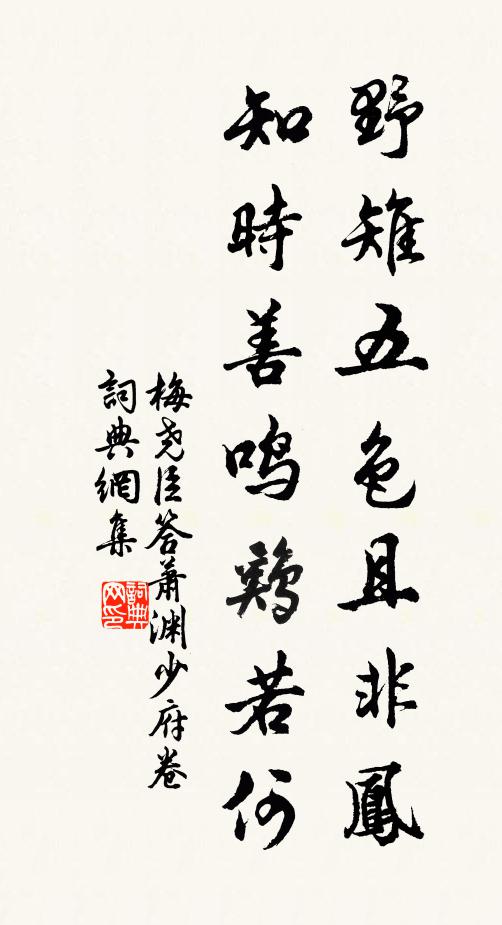 野雉五色且非鳳
知時善鳴鷄若何
梅尧臣答蕭渊少府卷
詞典網集
詞典网印